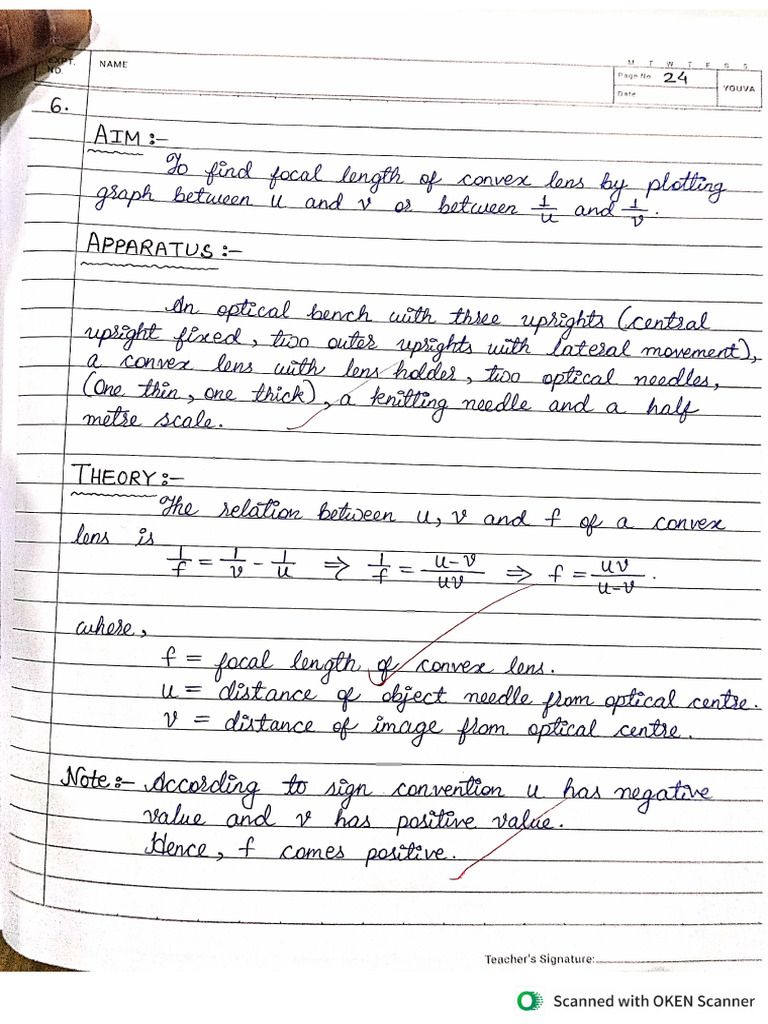 EXPT. NO.
NAME
M T W T F S S
Page No. 24
Date
YOUVA
6.
AIM :-
To find focal length of convex lens by plotting
graph between u and v or between 1/u and 1/v.
APPARATUS :-
An optical bench with three uprights (central
upright fixed, two outer uprights with lateral movement),
a convex lens with lens holder, two optical needles,
(One thin, one thick), a knitting needle and a half
metre scale.
THEORY :-
The relation between u, v and f of a convex
lens is
1/f = 1/v - 1/u ⇒ 1/f = u-v/uv ⇒ f = uv/u-v.
where,
f = focal length of convex lens.
u = distance of object needle from optical centre.
v = distance of image from optical centre.
Note:- According to sign convention u has negative
value and v has positive value.
Hence, f comes positive.
Teacher's Signature:
Scanned with OKEN Scanner